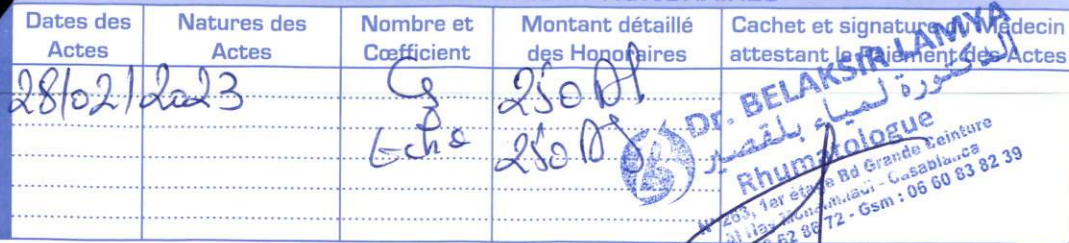 Dates des Actes
Natures des Actes
Nombre et Cœfficient
Montant détaillé des Honoraires
Cachet et signature du Médecin attestant le Paiement des Actes
28/02/2023
250
Echo 250
Dr. BELAKSIR LAMYA
الدكتورة لمياء بلقصير
Rhumatologue
263, 1er étage Bd Grande Ceinture
Casablanca
72 - Gsm : 06 60 83 82 39